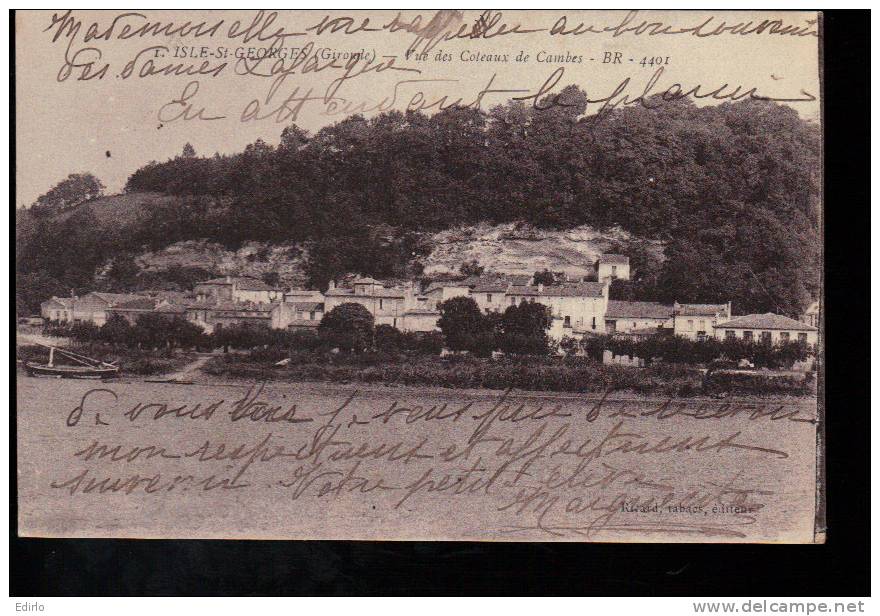 Mademoiselle vous rappeler au bon souvenir
1. ISLE-St-GEORGES (Gironde) — Vue des Coteaux de Cambes - BR - 4401
des dames Lafargue
En attendant le plaisir
de vous voir je vous prie de recevoir
mon respectueux et affectueux
souvenir Votre petite élève
Marguerite
Ricard, tabacs, éditeur
Edirlo
http://www.delcampe.net